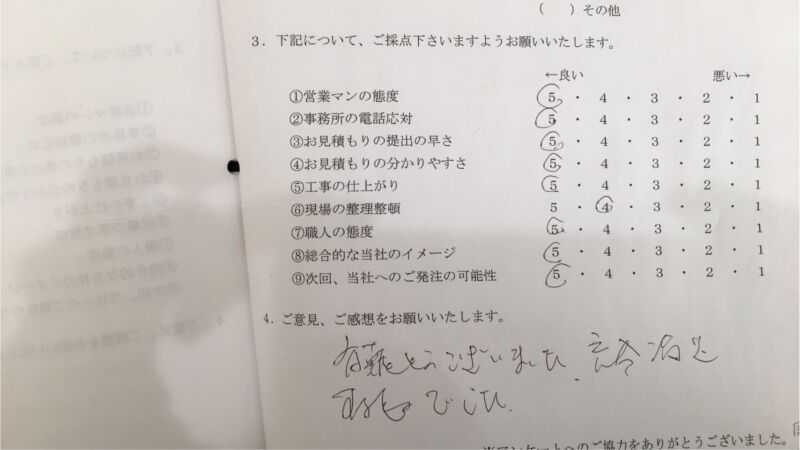 （　）その他
3．下記について、ご採点下さいますようお願いいたします。
←良い　悪い→
①営業マンの態度　5・4・3・2・1
②事務所の電話応対　5・4・3・2・1
③お見積もりの提出の早さ　5・4・3・2・1
④お見積もりの分かりやすさ　5・4・3・2・1
⑤工事の仕上がり　5・4・3・2・1
⑥現場の整理整頓　5・4・3・2・1
⑦職人の態度　5・4・3・2・1
⑧総合的な当社のイメージ　5・4・3・2・1
⑨次回、当社へのご発注の可能性　5・4・3・2・1
4．ご意見、ご感想をお願いいたします。
有難とうございました
でした．
※アンケートへのご協力をありがとうございました。